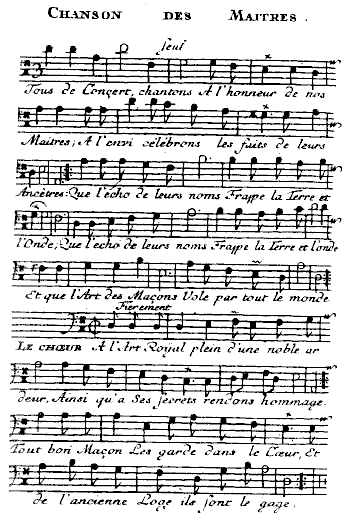 CHANSON DES MAITRES.
seul
Tous de Conçert, chantons A l'honneur de nos
Maitres; A l'envi célébrons les faits de leurs
Ancêtres: Que l'écho de leurs noms Frappe la Terre et
l'Onde, Que l'echo de leurs noms Frappe la Terre et l'onde
Et que l'Art des Maçons Vole par tout le monde
Fierement
LE CHŒUR A l'Art Royal plein d'une noble ar
deur, Ainsi qu'a Ses secrets rendons hommage.
Tout bon Maçon Les garde dans le Cœur, Et
de l'ancienne Loge ils sont le gage.